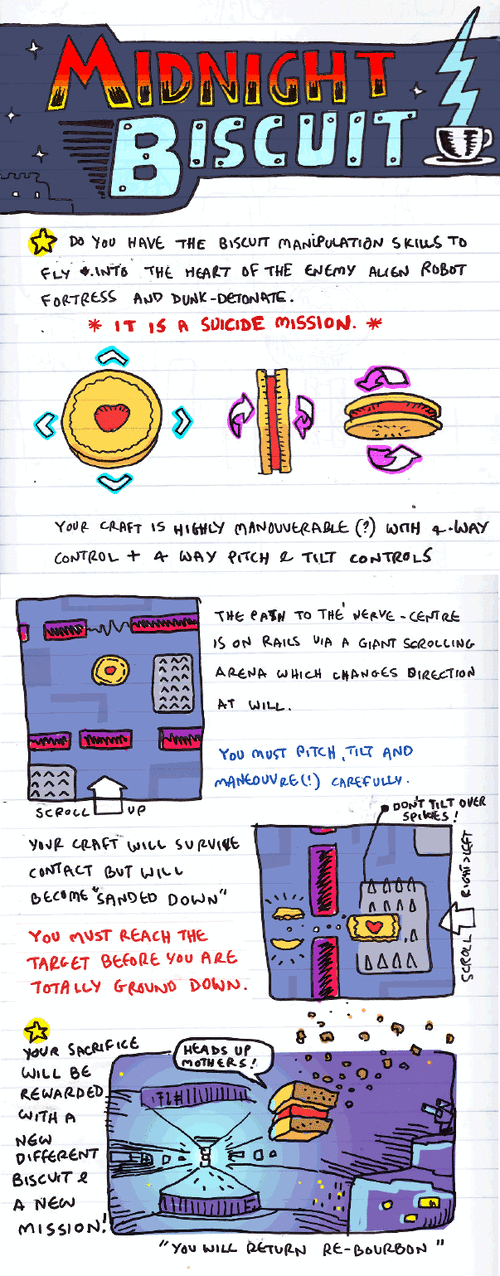 MIDNIGHT
BISCUIT
DO YOU HAVE THE BISCUIT MANIPULATION SKILLS TO
FLY INTO THE HEART OF THE ENEMY ALIEN ROBOT
FORTRESS AND DUNK-DETONATE.
* IT IS A SUICIDE MISSION. *
YOUR CRAFT IS HIGHLY MANOUVERABLE (?) WITH 4-WAY
CONTROL + 4 WAY PITCH & TILT CONTROLS
THE PATH TO THE NERVE-CENTRE
IS ON RAILS VIA A GIANT SCROLLING
ARENA WHICH CHANGES DIRECTION
AT WILL.
YOU MUST PITCH, TILT AND
MANEOUVRE(!) CAREFULLY.
SCROLL UP
DON'T TILT OVER
SPIKIES!
YOUR CRAFT WILL SURVIVE
CONTACT BUT WILL
BECOME "SANDED DOWN"
YOU MUST REACH THE
TARGET BEFORE YOU ARE
TOTALLY GROUND DOWN.
SCROLL RIGHT>LEFT
YOUR SACRIFICE
WILL BE
REWARDED
WITH A
NEW
DIFFERENT
BISCUIT &
A NEW
MISSION!
HEADS UP
MOTHERS!
"YOU WILL RETURN RE-BOURBON"